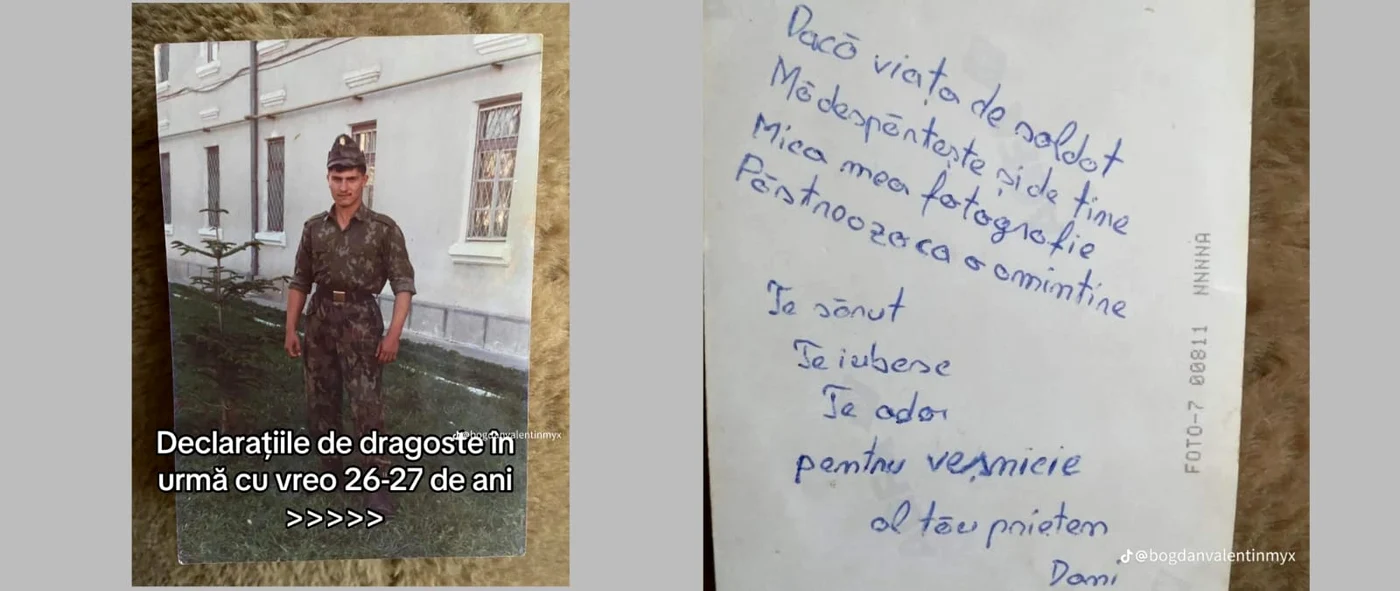 Declarațiile de dragoste în
urmă cu vreo 26-27 de ani
>>>>>
@bogdanvalentinmyx
Dacă viața de soldat
Mă despărțește și de tine
Mica mea fotografie
Păstreoză ca o amintire
Te sărut
Te iubesc
Te ador
pentru veșnicie
al tău prieten
Dani
FOTO-7 00811 NNNNA
@bogdanvalentinmyx